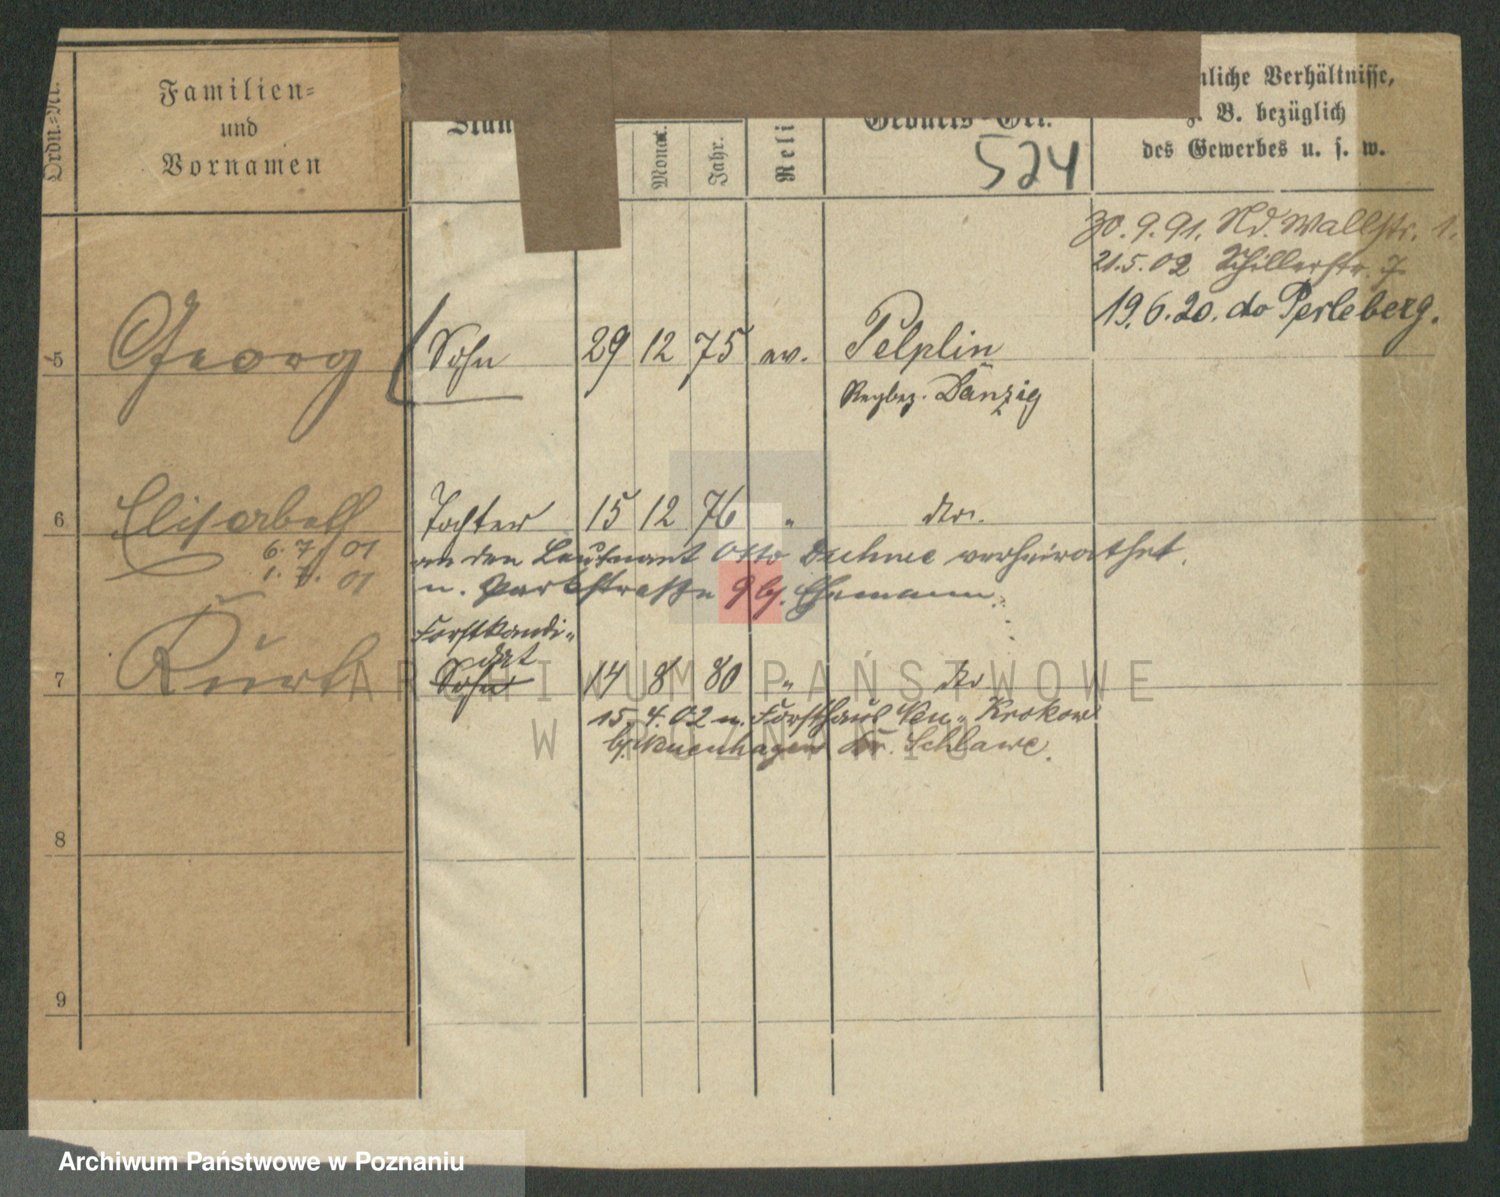 Ordn.-Nr.
Familien-
und
Vornamen
Stan
Monat.
Jahr.
Reli
Geburts-Ort.
524
nliche Verhältnisse,
z. B. bezüglich
des Gewerbes u. s. w.
30.9.91. Nd. Wallstr. 1.
21.5.02 Schillerstr. 7
19.6.20. do Perleberg.
5 Georg Sohn 29 12 75 ev. Pelplin
Regbez. Danzig
6 Elisabeth Tochter 15 12 76 " do.
6. 7. 01 an den Leutnant Otto Duhme verheirathet.
1. 7. 01 n. Parkstraße 9 bj. Ehemann.
Forstkandi-
dat
7 Kurt Sohn 14 8 80 " do
15.4.02 n. Forsthaus Neu-Krakow
bj. Neuenhagen Kr. Schlawe.
8
9
ARCHIWUM PAŃSTWOWE
W POZNANIU
Archiwum Państwowe w Poznaniu